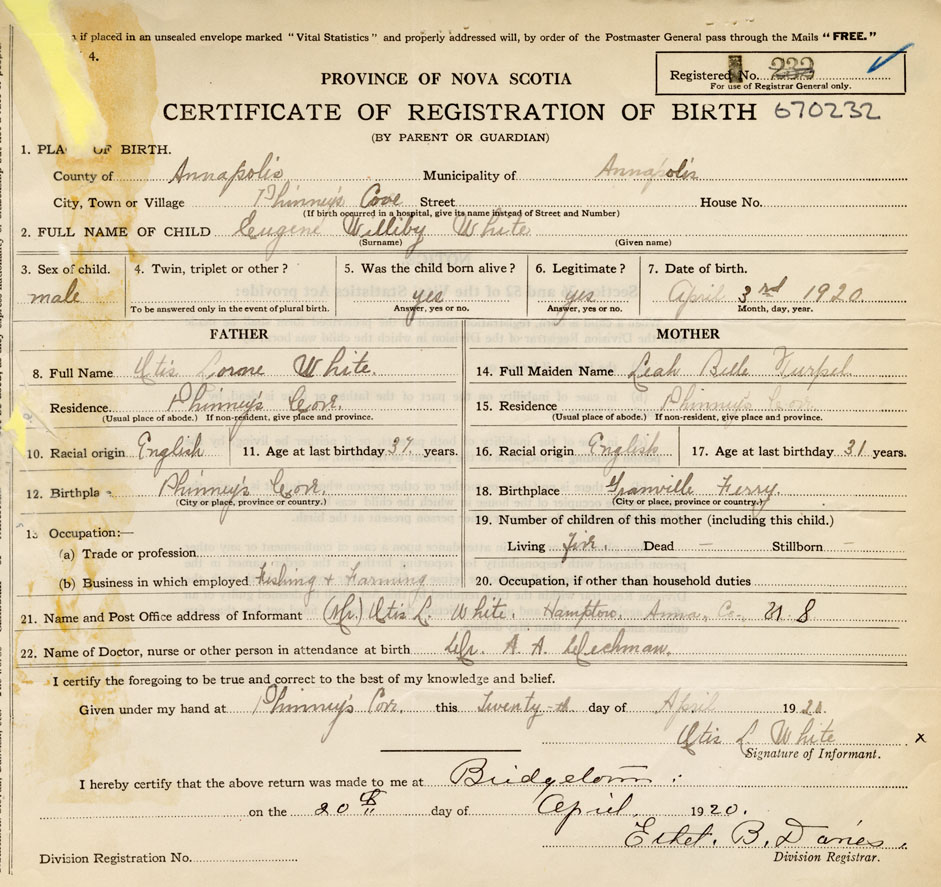 if placed in an unsealed envelope marked "Vital Statistics" and properly addressed will, by order of the Postmaster General pass through the Mails "FREE."
4.
Registered No. 232
For use of Registrar General only.
PROVINCE OF NOVA SCOTIA
CERTIFICATE OF REGISTRATION OF BIRTH 670232
(BY PARENT OR GUARDIAN)
1. PLA OF BIRTH.
County of Annapolis Municipality of Annapolis
City, Town or Village Phinney's Cove Street House No.
(If birth occurred in a hospital, give its name instead of Street and Number)
2. FULL NAME OF CHILD Eugene Williby White
(Surname) (Given name)
3. Sex of child. 4. Twin, triplet or other? 5. Was the child born alive? 6. Legitimate? 7. Date of birth.
male yes yes April 3rd 1920
To be answered only in the event of plural birth. Answer, yes or no. Answer, yes or no. Month, day, year.
FATHER MOTHER
8. Full Name Otis White. 14. Full Maiden Name Leah Belle
Residence Phinney's Cove. 15. Residence Phinney's Cove
(Usual place of abode.) If non-resident, give place and province. (Usual place of abode.) If non-resident, give place and province.
10. Racial origin English 11. Age at last birthday 37 years. 16. Racial origin English 17. Age at last birthday 31 years.
12. Birthpla e Phinney's Cove. 18. Birthplace Granville Ferry.
(City or place, province or country.) (City or place, province or country.)
13 Occupation:— 19. Number of children of this mother (including this child.)
(a) Trade or profession Living Five. Dead — Stillborn —
(b) Business in which employed Fishing + Farming 20. Occupation, if other than household duties
21. Name and Post Office address of Informant (Mr.) Otis L. White. Hampton, Anna. Co. N S
22. Name of Doctor, nurse or other person in attendance at birth Dr. A. A. Dechman.
I certify the foregoing to be true and correct to the best of my knowledge and belief.
Given under my hand at Phinney's Cove. this Twenty-th day of April 1920.
Otis L White x
Signature of Informant.
I hereby certify that the above return was made to me at Bridgetown.
on the 20th day of April, 1920.
Ethel. B. Davies.
Division Registration No. Division Registrar.